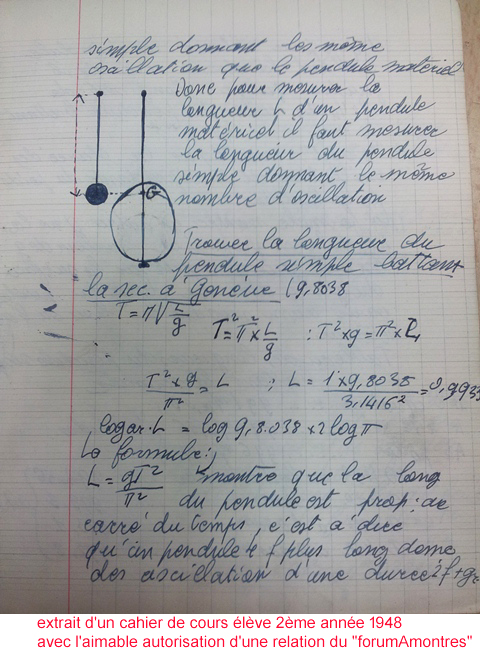 simple donnant les même
oscillation que le pendule matériel
Donc pour mesurer la
longueur L d'un pendule
matériel il faut mesurer
la longueur du pendule
simple donnant le même
nombre d'oscillation
G
Trouver la longueur du
pendule simple battant
la sec. à Genève (9,8038
T=π√L/g T²=π²×L/g ; T²×g=π²×L
T²×g/π²=L ; L=1×9,8038/3,1416²=0,993
logar. L = log 9,8.038 × 2 log π
La formule:
L = gT²/π² montre que la long
du pendule est prop: au
carré du temps, c'est à dire
qu'un pendule 4 f plus long donne
des oscillation d'une durée 2 f + gr
extrait d'un cahier de cours élève 2ème année 1948
avec l'aimable autorisation d'une relation du "forumAmontres"